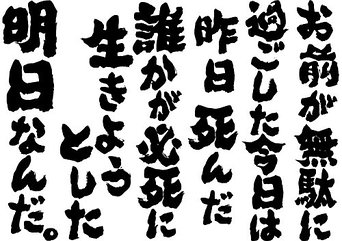 お前が無駄に
過ごした今日は
昨日死んだ
誰かが必死に
生きよう
とした
明日なんだ。